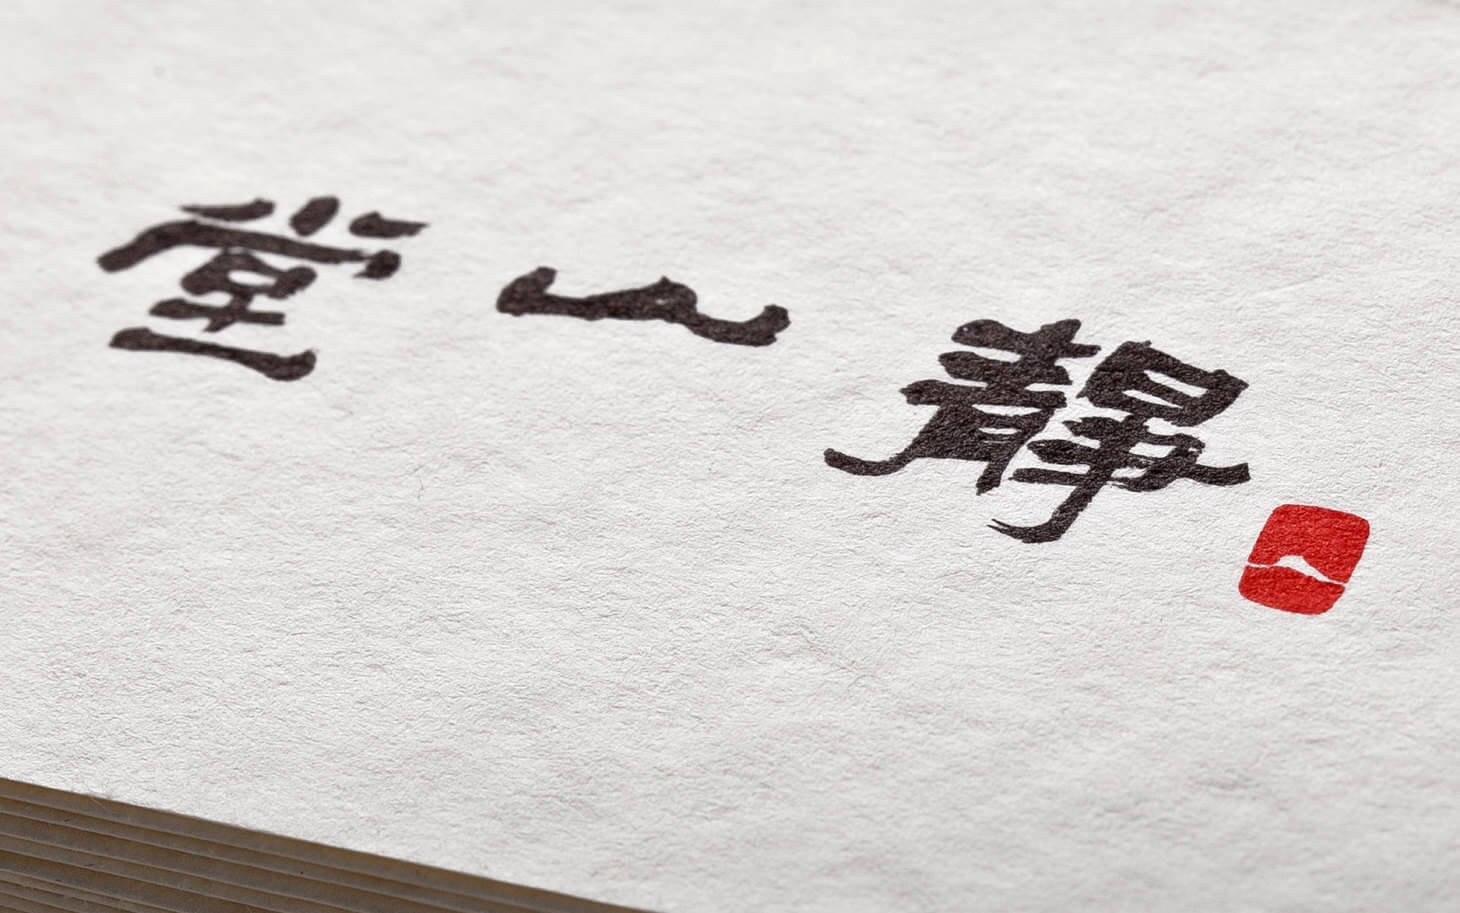 靜山堂